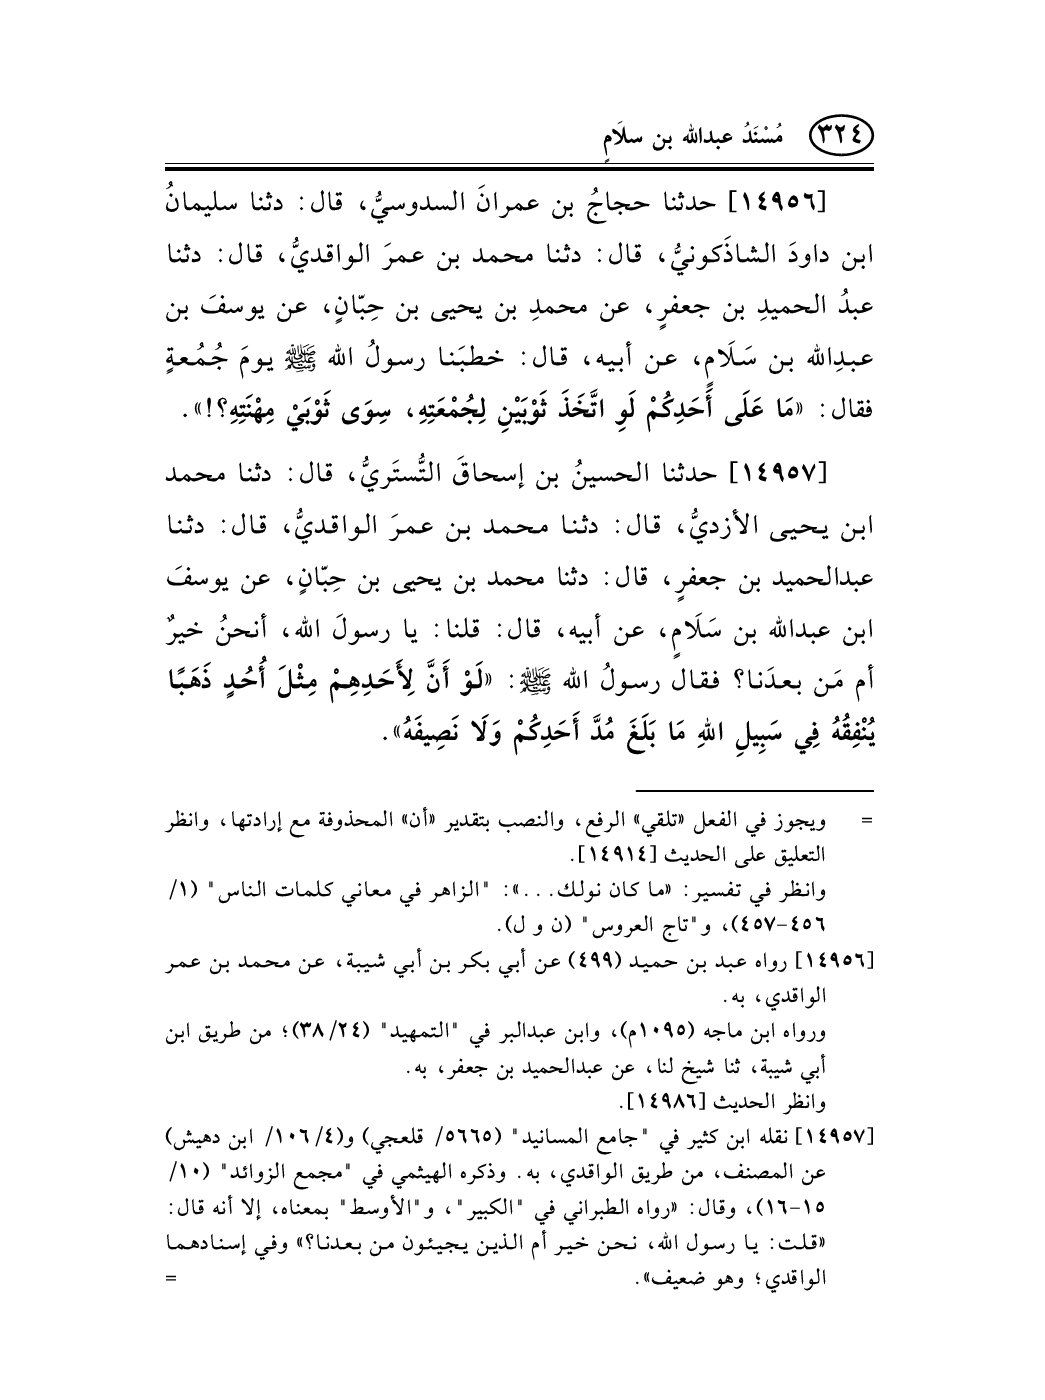 ٣٢٤ مُسْنَدُ عبدالله بن سلَامٍ
[١٤٩٥٦] حدثنا حجاجُ بن عمرانَ السدوسيُّ، قال: دثنا سليمانُ
ابن داودَ الشاذَكونيُّ، قال: دثنا محمد بن عمرَ الواقديُّ، قال: دثنا
عبدُ الحميدِ بن جعفرٍ، عن محمدِ بن يحيى بن حِبّانٍ، عن يوسفَ بن
عبدِالله بن سَلَامٍ، عن أبيه، قال: خطبَنا رسولُ الله ﷺ يومَ جُمُعةٍ
فقال: «مَا عَلَى أَحَدِكُمْ لَوِ اتَّخَذَ ثَوْبَيْنِ لِجُمْعَتِهِ، سِوَى ثَوْبَيْ مِهْنَتِهِ؟!».
[١٤٩٥٧] حدثنا الحسينُ بن إسحاقَ التُّستَريُّ، قال: دثنا محمد
ابن يحيى الأزديُّ، قال: دثنا محمد بن عمرَ الواقديُّ، قال: دثنا
عبدالحميد بن جعفرٍ، قال: دثنا محمد بن يحيى بن حِبّانٍ، عن يوسفَ
ابن عبدالله بن سَلَامٍ، عن أبيه، قال: قلنا: يا رسولَ الله، أنحنُ خيرٌ
أم مَن بعدَنا؟ فقال رسولُ الله ﷺ: «لَوْ أَنَّ لِأَحَدِهِمْ مِثْلَ أُحُدٍ ذَهَبًا
يُنْفِقُهُ فِي سَبِيلِ اللهِ مَا بَلَغَ مُدَّ أَحَدِكُمْ وَلَا نَصِيفَهُ».
= ويجوز في الفعل «تلقي» الرفع، والنصب بتقدير «أن» المحذوفة مع إرادتها، وانظر
التعليق على الحديث [١٤٩١٤].
وانظر في تفسير: «ما كان نولك...»: "الزاهر في معاني كلمات الناس" (١/
٤٥٦-٤٥٧)، و"تاج العروس" (ن و ل).
[١٤٩٥٦] رواه عبد بن حميد (٤٩٩) عن أبي بكر بن أبي شيبة، عن محمد بن عمر
الواقدي، به.
ورواه ابن ماجه (١٠٩٥م)، وابن عبدالبر في "التمهيد" (٢٤/ ٣٨)؛ من طريق ابن
أبي شيبة، ثنا شيخ لنا، عن عبدالحميد بن جعفر، به.
وانظر الحديث [١٤٩٨٦].
[١٤٩٥٧] نقله ابن كثير في "جامع المسانيد" (٥٦٦٥/ قلعجي) و(٤/ ١٠٦/ ابن دهيش)
عن المصنف، من طريق الواقدي، به. وذكره الهيثمي في "مجمع الزوائد" (١٠/
١٥-١٦)، وقال: «رواه الطبراني في "الكبير"، و"الأوسط" بمعناه، إلا أنه قال:
«قلت: يا رسول الله، نحن خير أم الذين يجيئون من بعدنا؟» وفي إسنادهما
الواقدي؛ وهو ضعيف». =